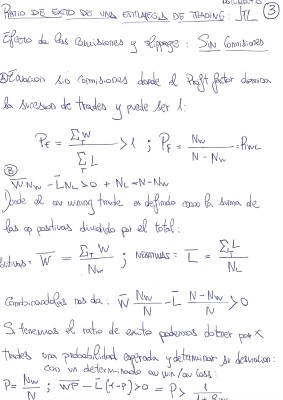 RATIO DE EXITO DE UNA ESTRATEGIA DE TRADING: 3
Efecto de las comisiones y slippage: SIN Comisiones
A Ecuacion sin comisiones donde el Profit factor domina
la sucesion de trades y puede ser 1:
P_F = Σ_T W / Σ_T L > 1 ; P_F = N_W / N - N_W = R_WL
B
W̄ N_W - L̄ N_L > 0 + N_L = N - N_W
Donde el av winning trade es definido como la suma de
las op positivas dividido por el total:
positivas = W̄ = Σ_T W / N_W ; NEGATIVAS = L̄ = Σ_T L / N_L
Combinandolas nos da: W̄ N_W / N - L̄ N - N_W / N > 0
Si tenemos el ratio de exito podemos obtener por X
trades una probabilidad esperada y determinar su desviacion:
con un determinado av win/av loss:
P = N_W / N ; W̄P - L̄(1-P) > 0 = P > 1 / 1 +